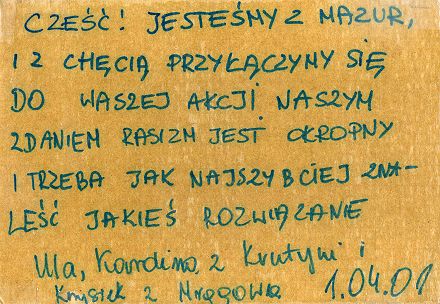 CZEŚĆ! JESTEŚMY Z MAZUR,
I Z CHĘCIĄ PRZYŁĄCZYMY SIĘ
DO WASZEJ AKCJI NASZYM
ZDANIEM RASIZM JEST OKROPNY
I TRZEBA JAK NAJSZYBCIEJ ZNA-
LEŚĆ JAKIEŚ ROZWIĄZANIE
Ula, Karolina z Krutyni i
Krysiek z Mrągowa 1.04.01